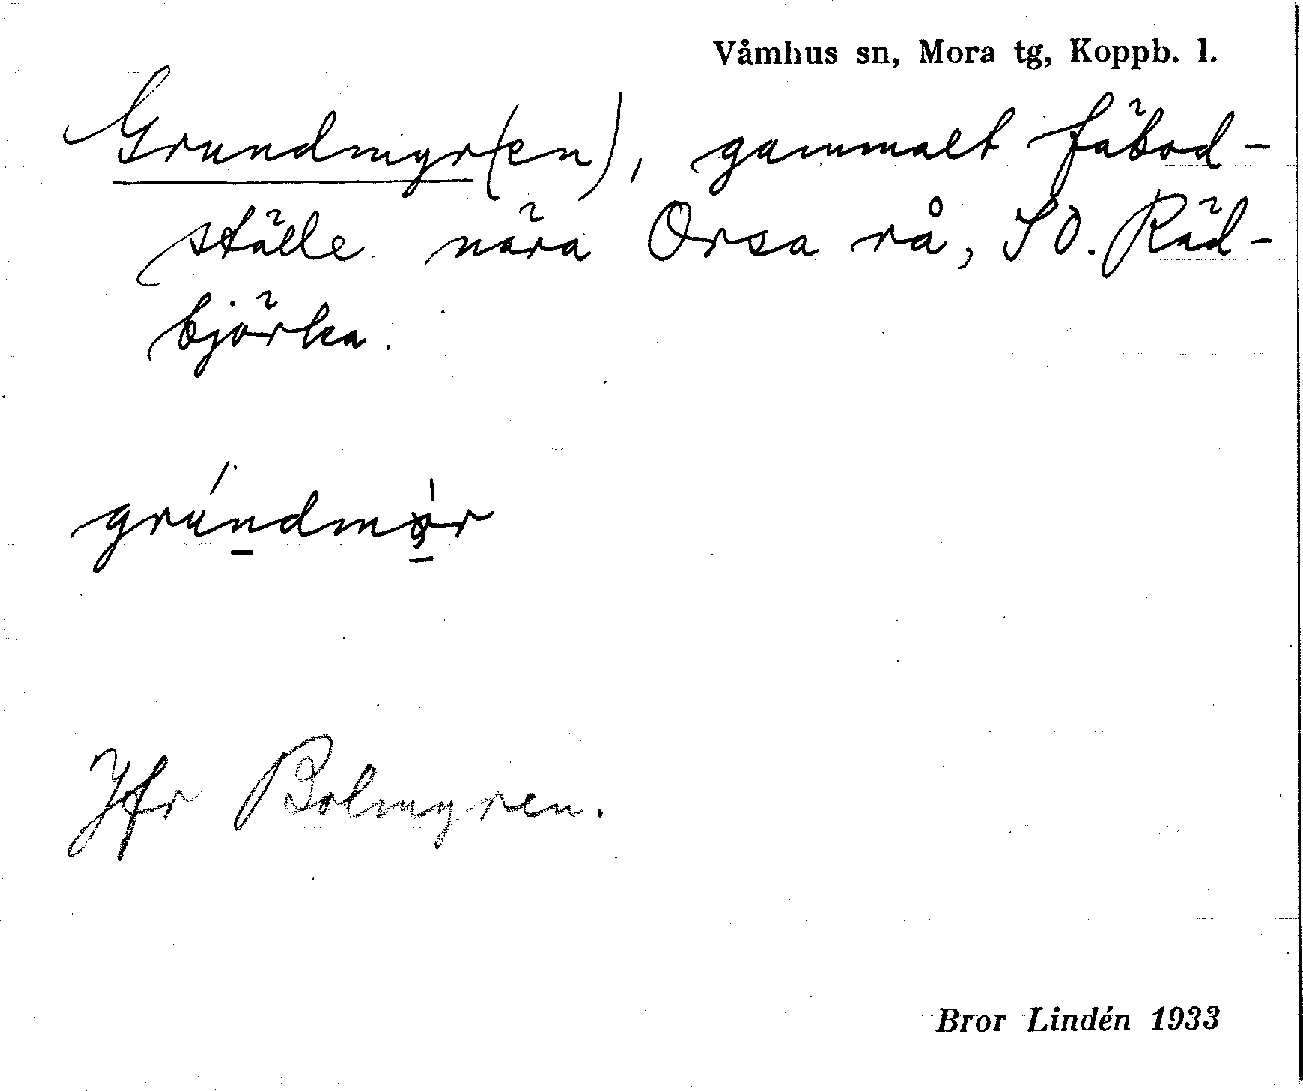 Våmhus sn, Mora tg, Koppb. l.
Grundmyr(en), gammalt fäbod-
ställe nära Orsa rå, SO. Räd-
björka.
Jfr Bolmyren.
Bror Lindén 1933